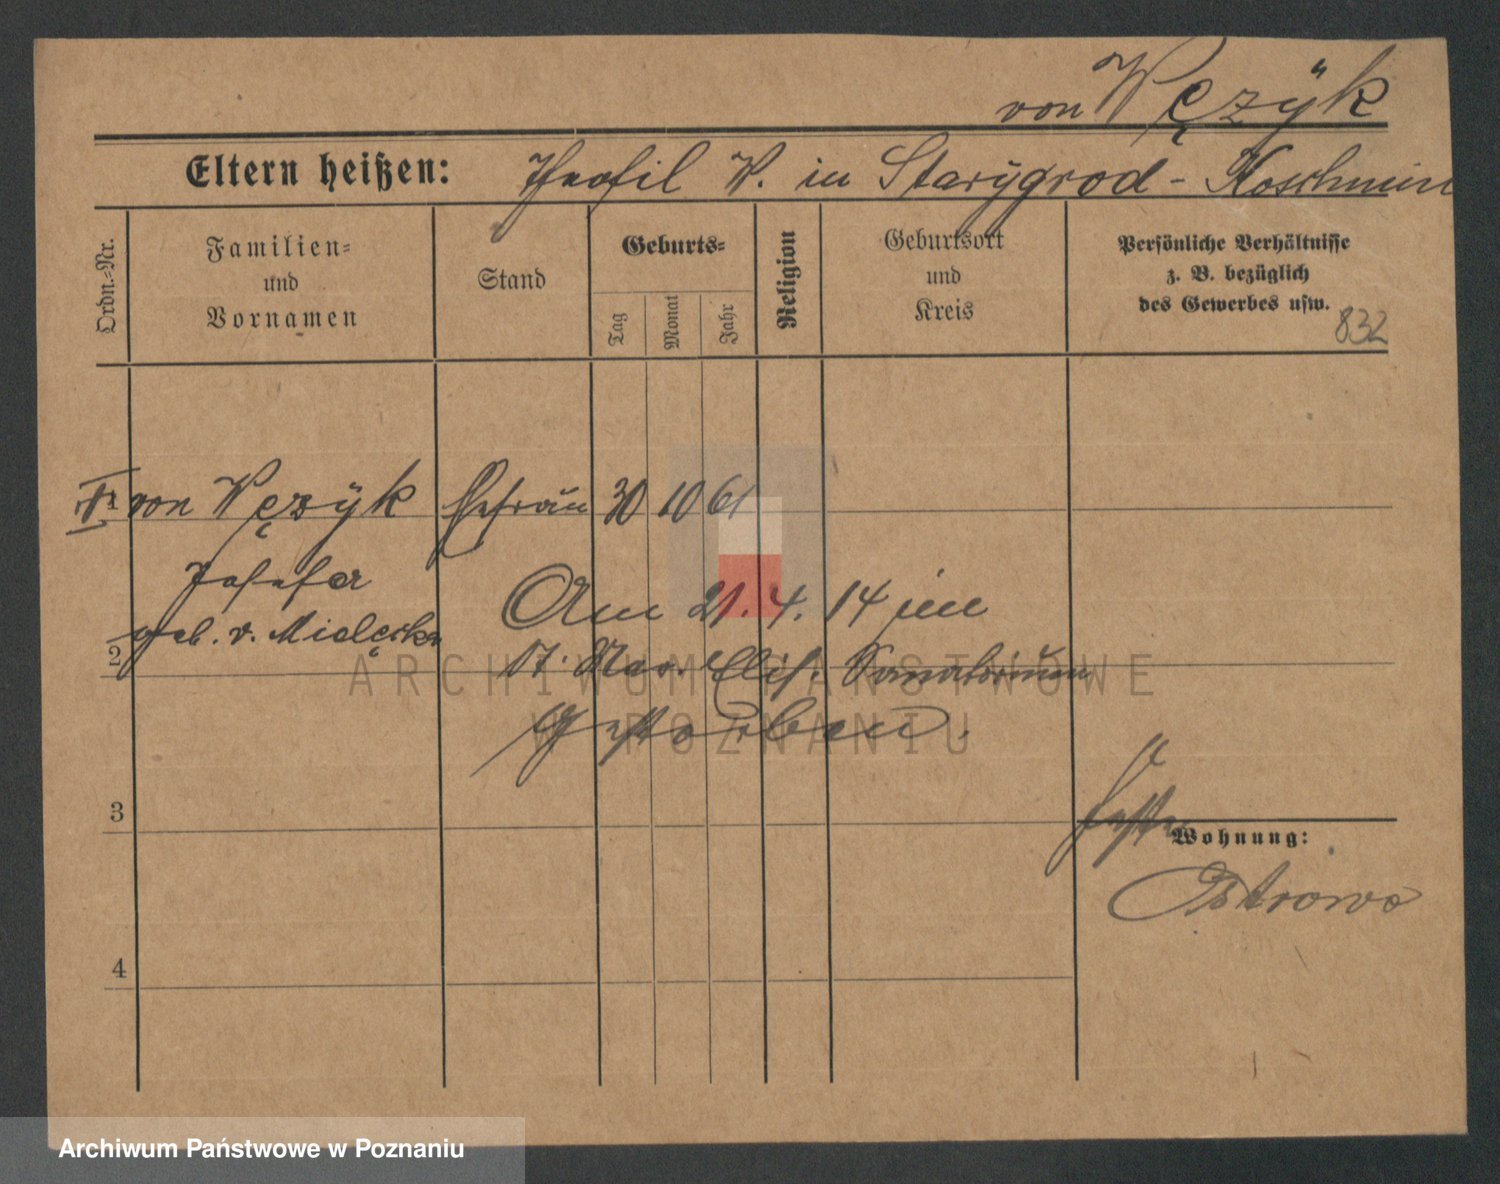 von Węzÿk
Eltern heißen: Theofil W. in Starÿgrod - Koschmin
Ordn.-Nr.
Familien-
und
Vornamen
Stand
Geburts-
Tag
Monat
Jahr
Religion
Geburtsort
und
Kreis
Persönliche Verhältnisse
z. B. bezüglich
des Gewerbes usw.
832
1 von Węzÿk Ehefrau 30 10 61
Josefa
geb. v. Mielęcka
Am 21. 4. 14 im
2
St. Mar. Elis. Sanatorium
gestorben.
ARCHIWUM PAŃSTWOWE
W POZNANIU
3
Wohnung:
Ostrowo
4
Archiwum Państwowe w Poznaniu